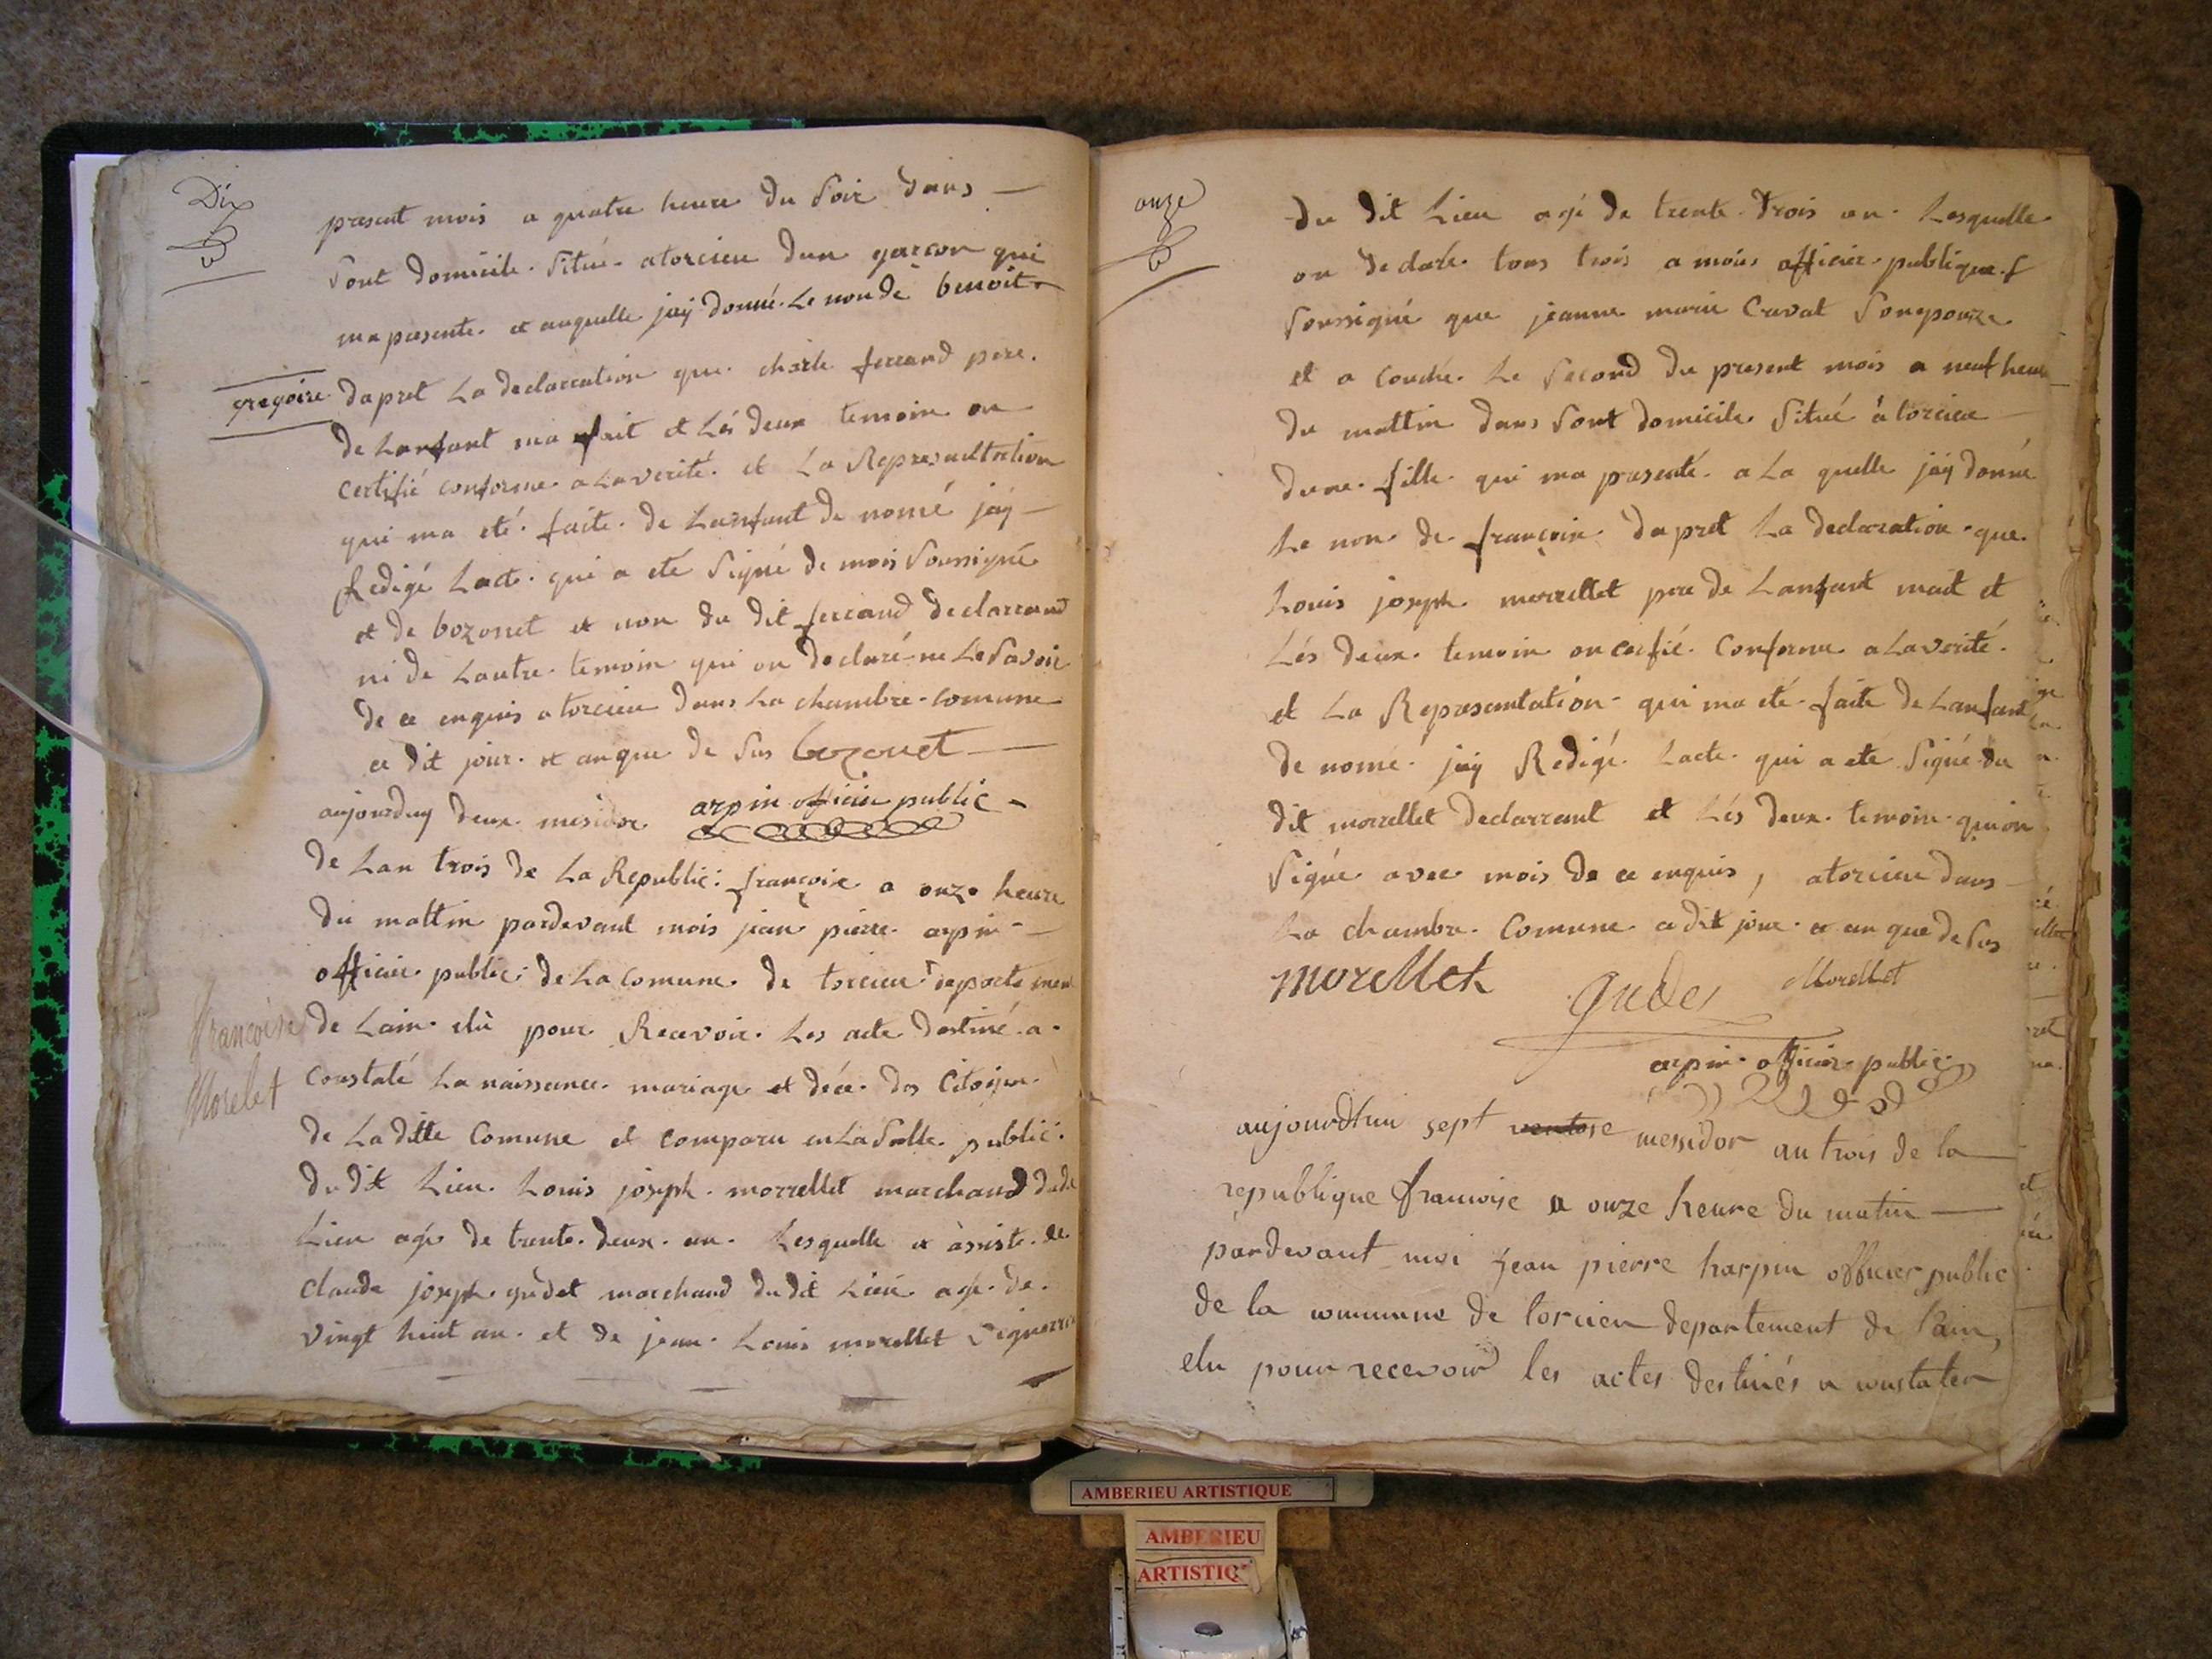 Dix
present mois a quatre heure du soir dans
sont domicile situé atorcieu dun garcon qui
ma presente et auquelle jay donné le non de benoit
gregoire
dapret La declarration que charle ferrand pere
de Lanfant ma fait et Lés deux temoin on
certifié conforme a La verité et La Represeultation
qui ma eté faite de Lanfant de nomé jay
Redigé Lacte qui a eté signé de mois soussigné
et de bozonet et non du dit ferrand declarrand
ni de Lautre temoin qui on declaré ne Le savoir
de ce enquis a torcieu dans La chambre comune
ce dit jour et an que de sus bozonet
arpin officier public
aujourduy deux mesidor
de Lan trois de La Republic françoise a onze heure
du mattin pardevant mois jean pierre arpin
officier public de La comune de torcieu departemen
de Lain elù pour Recevoir Les acte destiné a
françoise
Morelet
constaté La naissance mariage et déce des Citoyen
de La ditte Comune et comparu en La salle public
du dit Lieu Louis joseph morrellet marchand dudi
Lieu agé de trente deux an Lesquelle a àssisté de
claude joseph gudet marchand du dit Lieu agé de
vingt huit an et de jean Louis morellet
onze
du dit Lieu agé de trente trois an Lesquelle
on declaré tous trois a mois officier publique
soussigné que jeanne marie Cuvat son epouze
et a couché Le second du present mois a neuf heure
du mattin dans sont domicile situé à torcieu
dune fille qui ma presenté a La quelle jay donné
Le non de françoise dapret La declaration que
Louis joseph morrellet pere de Lanfant mait et
Lés deux temoin on cerfié Conforme a La verité
et La Representation qui ma eté faite de Lanfant
de nomé jay Redigé Lacte qui a eté signé du
dit morrellet declarrant et Lés deux temoin quion
signé avec mois de ce enquis, atorcieu dans
La chambre Comune ce dit jour et an que de sus
morellet gudet Morellet
arpin officier public
aujourdhui sept ventose messidor an trois de la
republique francoise a onze heure du matin
pardevant moi jean pierre harpin officier public
de la commune de torcieu departement de l'ain,
elu pour recevoir les actes destinés a constater
AMBERIEU ARTISTIQUE
AMBERIEU
ARTISTIQ